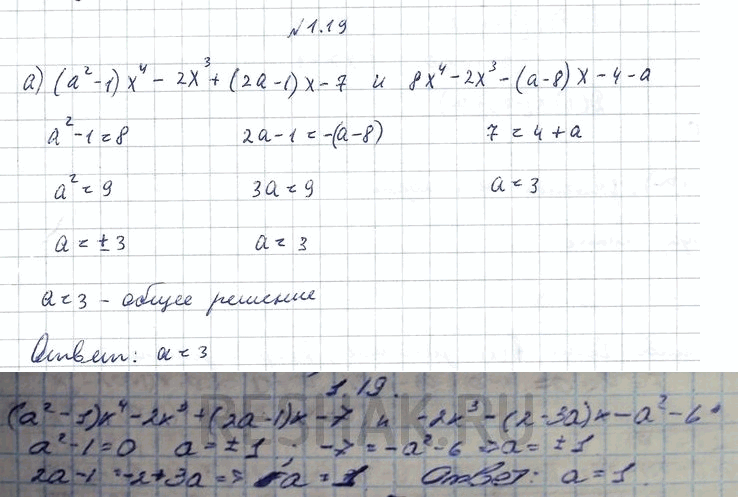 №1.19
а) (a²-1)x⁴ - 2x³ + (2a-1)x - 7 и 8x⁴ - 2x³ - (a-8)x - 4 - a
a² - 1 = 8 2a - 1 = -(a-8) 7 = 4 + a
a² = 9 3a = 9 a = 3
a = ± 3 a = 3
a = 3 - общее решение
Ответ: a = 3
1.19.
(a² - 1)x⁴ - 2x³ + (2a-1)x - 7 и -2x³ - (2-3a)x - a² - 6
a² - 1 = 0 a = ± 1 -7 = -a² - 6 => a = ± 1
2a - 1 = -2 + 3a => a = 1 Ответ: a = 1
RESHAK.RU